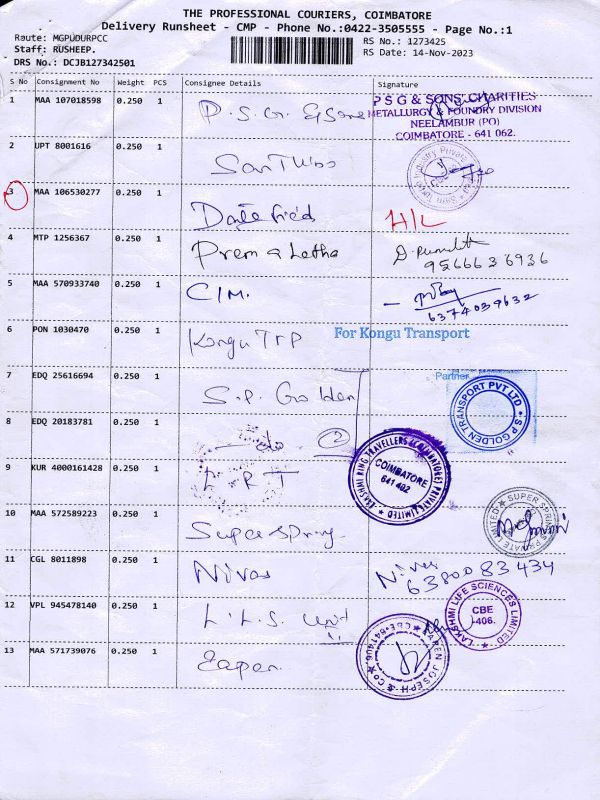 THE PROFESSIONAL COURIERS, COIMBATORE
Delivery Runsheet - CMP - Phone No.:0422-3505555 - Page No.:1
Route: MGPUDURPCC
Staff: RUSHEEP.
DRS No.: DCJB127342501
RS No.: 1273425
RS Date: 14-Nov-2023
S No Consignment No Weight PCS Consignee Details Signature
1 MAA 107018598 0.250 1 P.S.G. & Sons
PSG & SONS' CHARITIES
METALLURGY & FOUNDRY DIVISION
NEELAMBUR (PO)
COIMBATORE - 641 062.
2 UPT 8001616 0.250 1
3 MAA 106530277 0.250 1 H/L
4 MTP 1256367 0.250 1 Prema Latha
9566636936
5 MAA 570933740 0.250 1 CIM.
6374039632
6 PON 1030470 0.250 1 Kongu TTP For Kongu Transport
7 EDQ 25616694 0.250 1 S.P. Golden
Partner
S P GOLDEN TRANSPORT PVT LTD
8 EDQ 20183781 0.250 1 do 2
9 KUR 4000161428 0.250 1 L R T
LAKSHMI RING TRAVELLERS (COIMBATORE) PRIVATE LIMITED
COIMBATORE
641 402
10 MAA 572589223 0.250 1 Super spring
SUPER SPRINGS PRIVATE LIMITED
11 CGL 8011898 0.250 1 Nivas Nivas
6380083434
12 VPL 945478140 0.250 1 L.L.S. Unit II
LAKSHMI LIFE SCIENCES LIMITED
CBE
-406.
13 MAA 571739076 0.250 1 Eapen
EAPEN JOSEPH & CO
CBE-641406